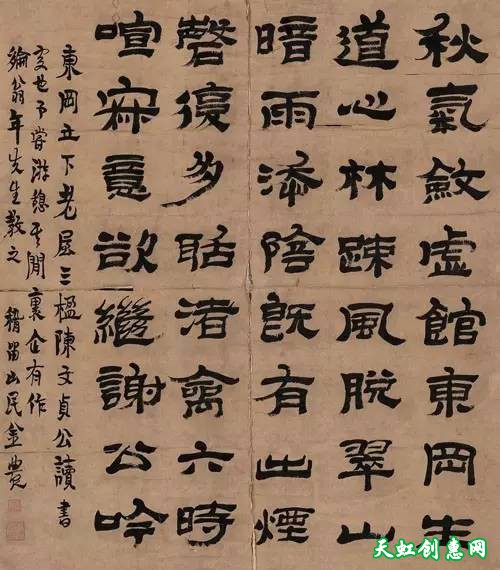 秋氣斂虛館東岡生
道心林疎風脫翠山
暗雨添陰既有出煙
磬復多聒渚禽六時
喧寂意欲繼謝公吟
東岡下老屋三楹陳文貞公讀書
處也予嘗游憩其間企有作
綸翁年先生教之 稽留山民金農
天虹创意网